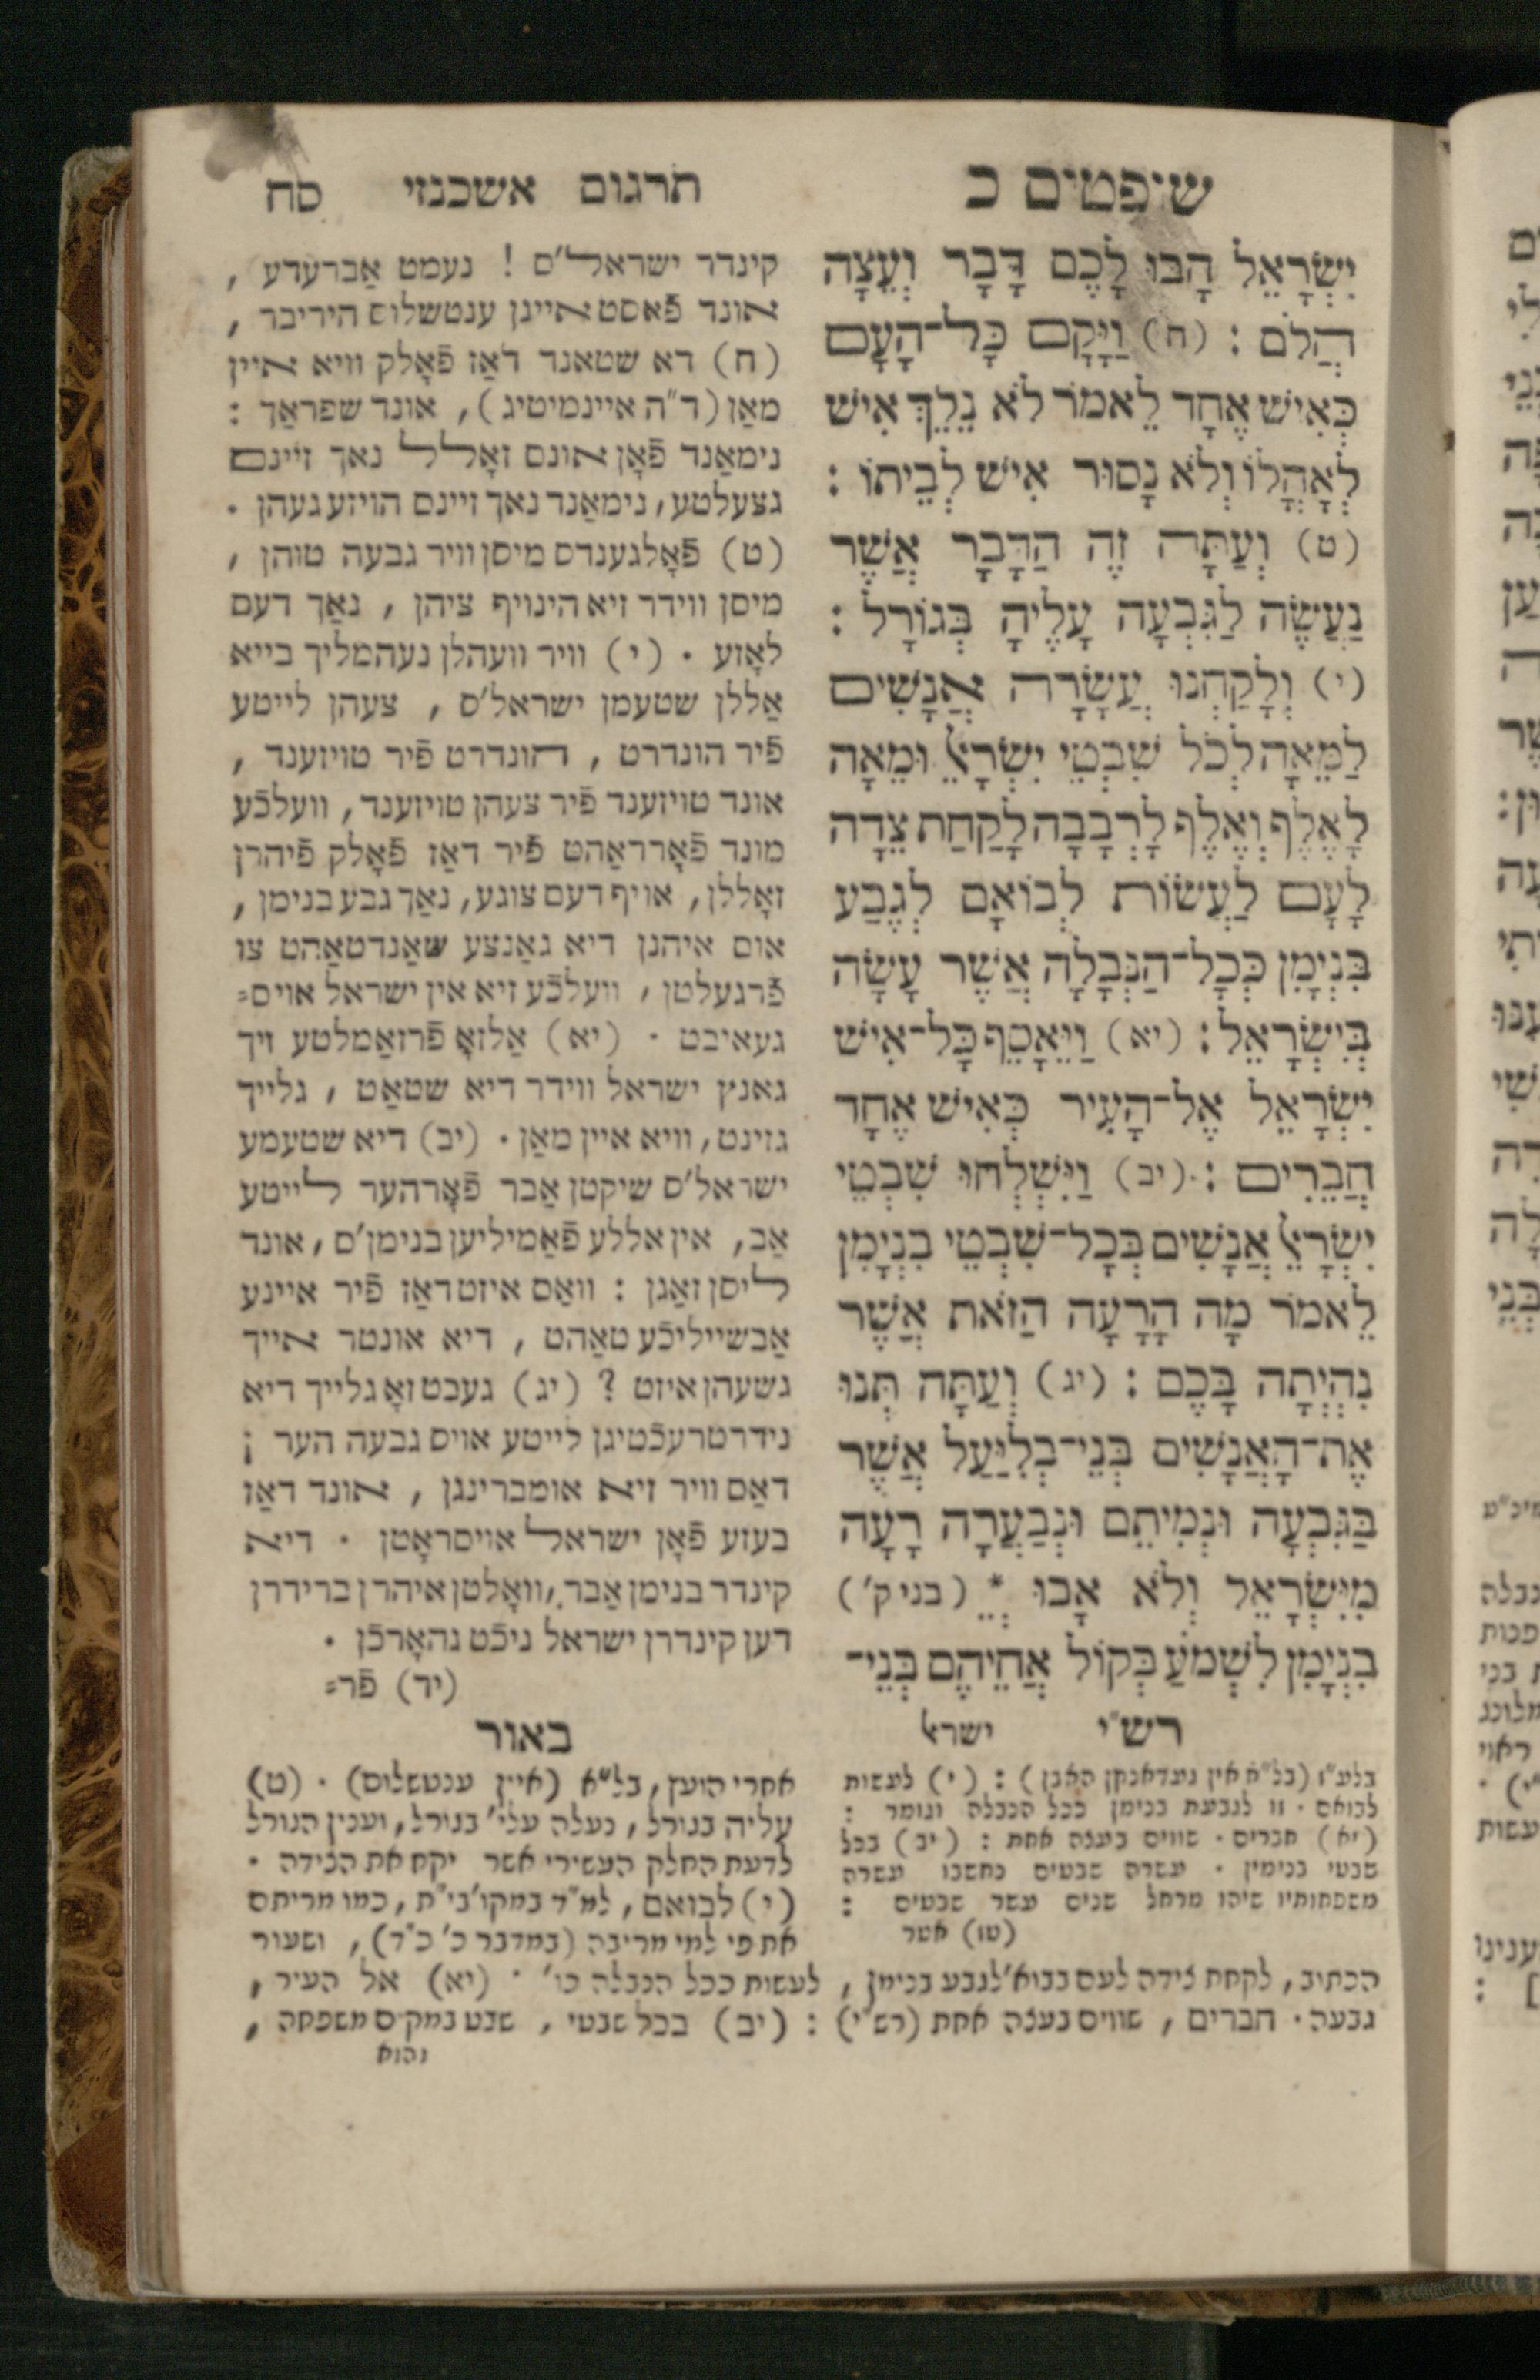 שופטים כ
יִשְׂרָאֵל הָבוּ לָכֶם דָּבָר וְעֵצָה
הֲלֹם : (ח) וַיָּקָם כָּל־הָעָם
כְּאִישׁ אֶחָד לֵאמֹר לֹא נֵלֵךְ אִישׁ
לְאָהֳלוֹ וְלֹא נָסוּר אִישׁ לְבֵיתוֹ :
(ט) וְעַתָּה זֶה הַדָּבָר אֲשֶׁר
נַעֲשֶׂה לַגִּבְעָה עָלֶיהָ בְּגוֹרָל :
(י) וְלָקַחְנוּ עֲשָׂרָה אֲנָשִׁים
לַמֵּאָה לְכֹל שִׁבְטֵי יִשְׂרָאֵל וּמֵאָה
לָאֶלֶף וְאֶלֶף לָרְבָבָה לָקַחַת צֵדָה
לָעָם לַעֲשׂוֹת לְבוֹאָם לְגֶבַע
בִּנְיָמִן כְּכָל־הַנְּבָלָה אֲשֶׁר עָשָׂה
בְּיִשְׂרָאֵל : (יא) וַיֵּאָסֵף כָּל־אִישׁ
יִשְׂרָאֵל אֶל־הָעִיר כְּאִישׁ אֶחָד
חֲבֵרִים : (יב) וַיִּשְׁלְחוּ שִׁבְטֵי
יִשְׂרָאֵל אֲנָשִׁים בְּכָל־שִׁבְטֵי בִנְיָמִן
לֵאמֹר מָה הָרָעָה הַזֹּאת אֲשֶׁר
נִהְיְתָה בָּכֶם : (יג) וְעַתָּה תְּנוּ
אֶת־הָאֲנָשִׁים בְּנֵי־בְלִיַּעַל אֲשֶׁר
בַּגִּבְעָה וּנְמִיתֵם וּנְבַעֲרָה רָעָה
מִיִּשְׂרָאֵל וְלֹא אָבוּ * ְֵ (בני ק')
בִנְיָמִן לִשְׁמֹעַ בְּקוֹל אֲחֵיהֶם בְּנֵי־
ישראל
תרגום אשכנזי סח
קינדר ישראל'ס ! נעמט אַברעדע ,
אונד פֿאסט איינן ענטשלוס היריבר ,
(ח) דא שטאנד דאַז פֿאָלק וויא איין
מאַן (ד"ה איינמיטיג), אונד שפראַך :
נימאַנד פֿאָן אונס זאָלל נאך זיינם
געצעלטע, נימאַנד נאך זיינם הויזע געהן .
(ט) פֿאָלגענדס מיסן וויר גבעה טוהן ,
מיסן ווידר זיא הינויף ציהן , נאַך דעם
לאָזע . (י) וויר וועהלן נעהמליך בייא
אַללן שטעמן ישראל'ס , צעהן לייטע
פֿיר הונדרט , הונדרט פֿיר טויזענד ,
אונד טויזענד פֿיר צעהן טויזענד, וועלכֿע
מונד פֿאָרראַהט פֿיר דאַז פֿאָלק פֿיהרן
זאָללן, אויף דעם צוגע, נאַך גבע בנימן ,
אום איהנן דיא גאַנצע שאַנדטאַהט צו
פֿרגעלטן , וועלכֿע זיא אין ישראל אויס=
געאיבט . (יא) אַלזאָ פֿרזאַמלטע זיך
גאנץ ישראל ווידר דיא שטאַט , גלייך
גזינט, וויא איין מאַן . (יב) דיא שטעמע
ישראל'ס שיקטן אַבר פֿאָרהער לייטע
אַב, אין אללע פֿאַמיליען בנימן'ס, אונד
ליסן זאַגן : וואַס איזט דאַז פֿיר איינע
אַבשייליכֿע טאַהט , דיא אונטר אייך
געשעהן איזט ? (יג) געבט זאָגלייך דיא
נידרטרעכֿטיגן לייטע אויס גבעה הער ;
דאַס וויר זיא אומברינגן , אונד דאַז
בעזע פֿאָן ישראל אויסראָטן . דיא
קינדר בנימן אַבר, וואָלטן איהרן ברידרן
דען קינדרן ישראל ניכֿט געהאָרכֿן .
(יד) פֿר=
רש"י
בלע"ז : (י) לעשות
לבואם . זו לגבעת בנימן ככל הנבלה וגומר :
(יא) חברים . שווים בעצה אחת : (יב) בכל
שבטי בנימין . עשרה שבטים נחשבו עשרה
משפחותיו שיהו מרחל שנים עשר שבטים :
(טו) אשר
באור
אחרי הועץ, בל"א (איין ענטשלוס) . (ט)
עליה בגורל, נעלה עלי' בגורל, וענין הגורל
לדעת החלק העשירי אשר יקח את הצידה .
(י) לבואם, למ"ד במקו' בי"ת, כמו מריתם
את פי למי מריבה (במדבר כ' כ"ד), ושעור
הכתוב, לקחת צידה לעם בבוא' לגבע בנימן , לעשות ככל הנבלה כו' . (יא) אל העיר ,
גבעה . חברים , שווים בעצה אחת (רש"י) : (יב) בכל שבטי , שבט במקום משפחה ,
והוא